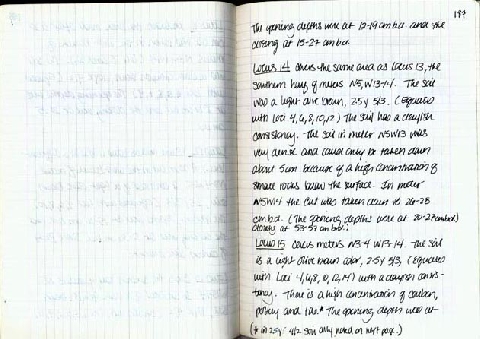 187
The opening depths were at 12-19 cm b.d. and the
closing at 15-27 cm b.d.
Locus 14 shares the same area as Locus 13, the
southern half of meters N5, W13+14. The soil
was a light olive brown, 2.5 y 5/3. (equates
with Loci 4, 6, 8, 10, 12) The soil has a clayish
consistency. The soil in meter N5W13 was
very dense and could only be taken down
about 5cm because of a high concentration of
small rocks below the surface. In meter
N5W14 the level was taken down at 26-28
cm. b.d. (The opening depths were at 20-27 cm b.d.)
closing at 53-57 cm b.d.
Locus 15 covers meters N3-4 W13-14. The soil
is a light olive brown color, 2.5 y 5/3, (equates
with Loci 4, 6, 8, 10, 12, 14) with a clayish consis-
tency. There is a high concentration of carbon,
pottery and tile.* The opening depth were at
(* in 2.5 y 4/2 soil only, noted on next page.)